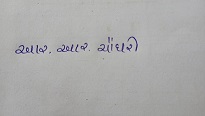 આર. આર. ચૌધરી